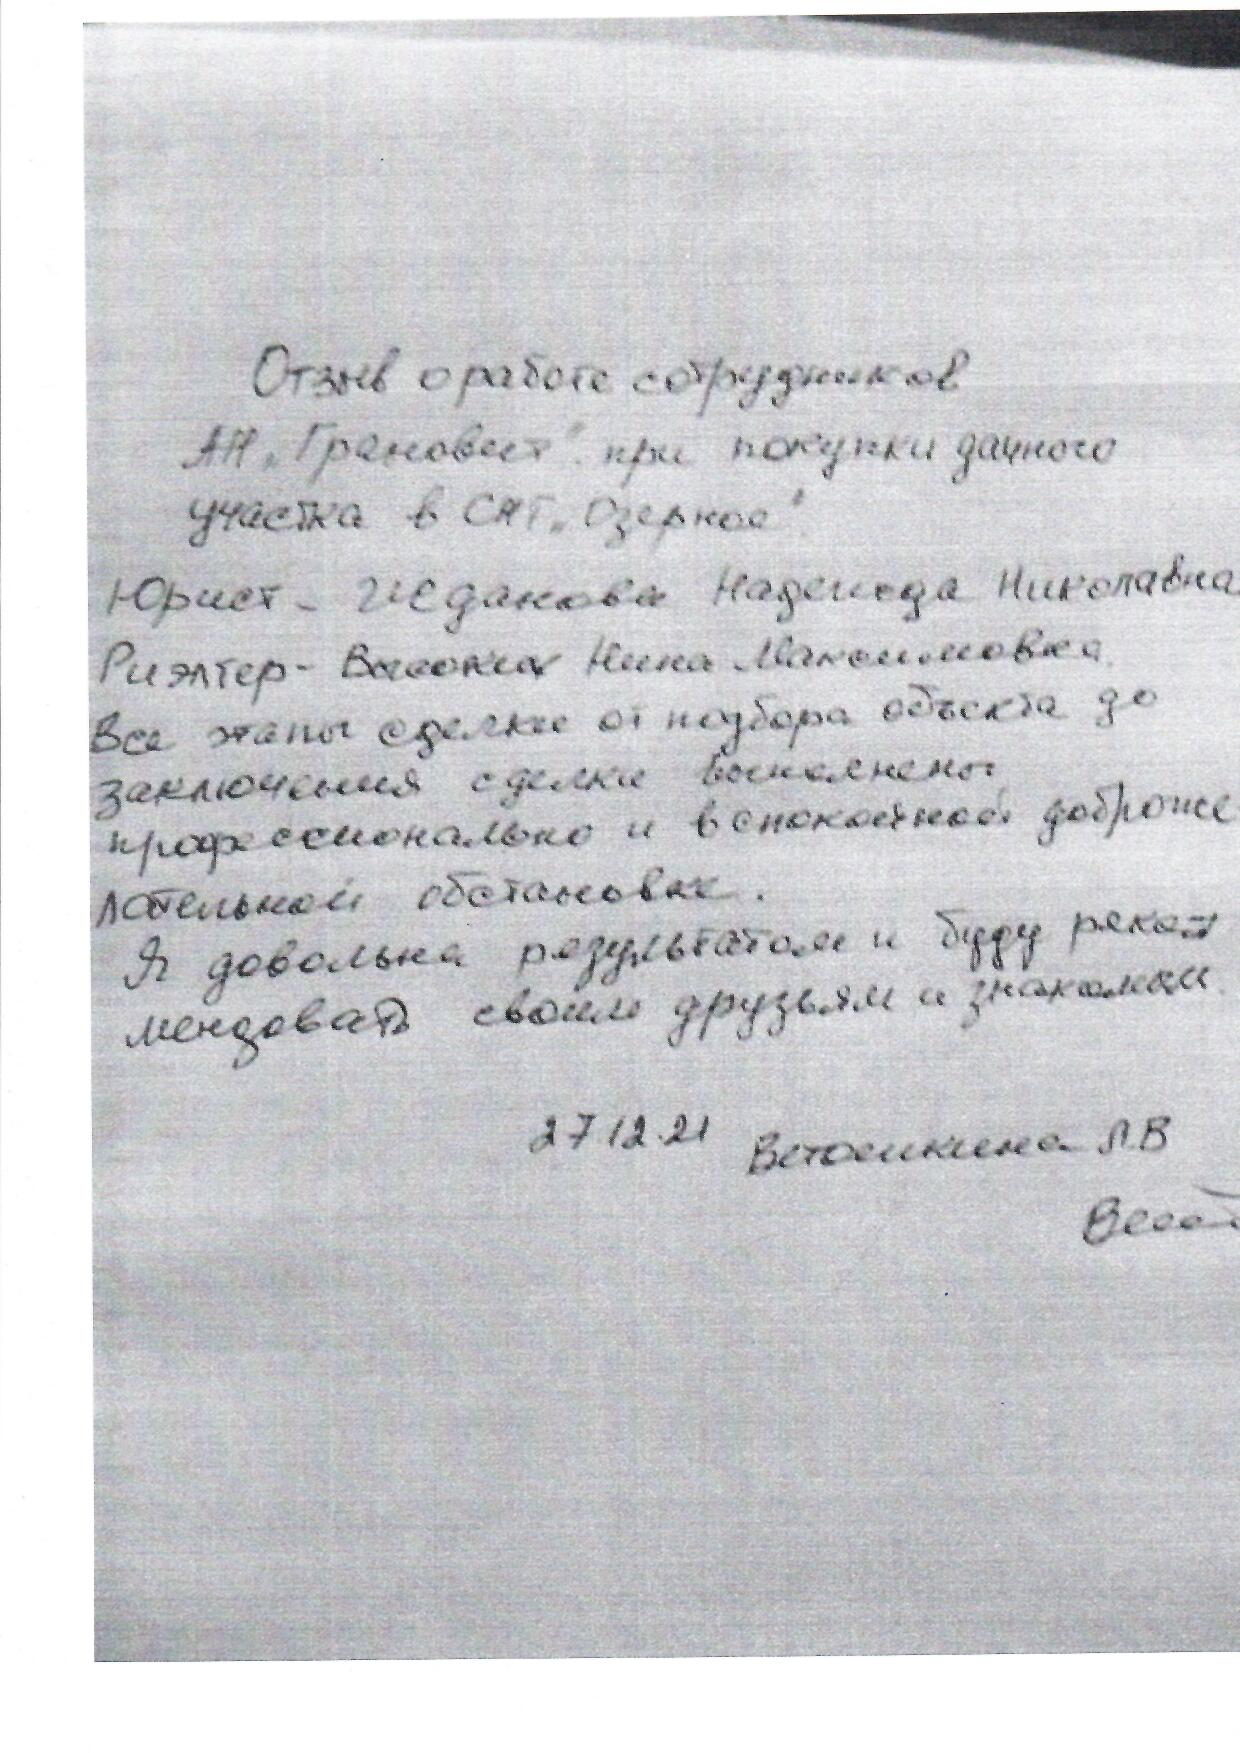 Отзыв о работе сотрудников
АН „Грановест" при покупки дачного
участка в СНТ „Озерное".
Юрист - Надежда Николавна
Риэлтер - Нина Максимовна.
Все этапы сделки от подбора объекта до
заключения сделки выполнены
профессионально и в спокойной доброже
лательной обстановке.
Я довольна результатом и буду реко
мендовать своим друзьям и знакомым.
27 12.21 Ветошкина Л.В